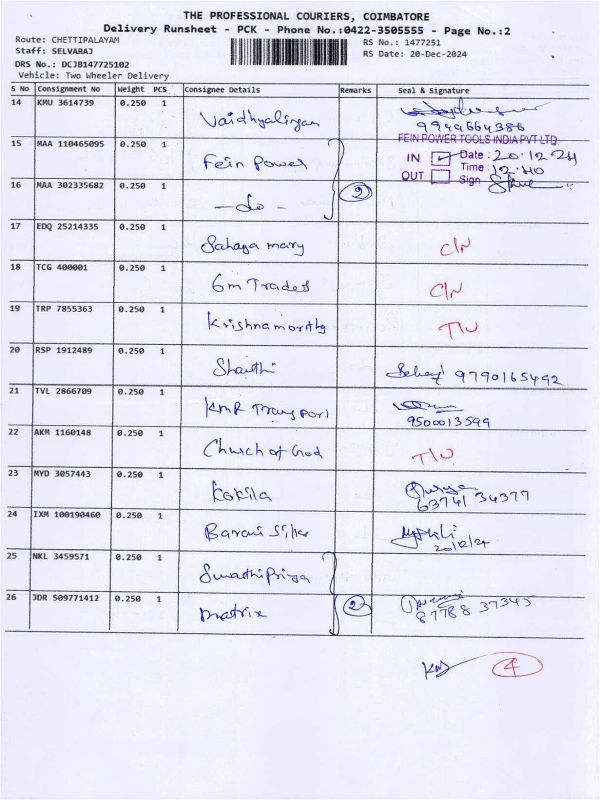 THE PROFESSIONAL COURIERS, COIMBATORE
Delivery Runsheet - PCK - Phone No.:0422-3505555 - Page No.:2
Route: CHETTIPALAYAM
RS No.: 1477251
Staff: SELVARAJ
RS Date: 20-Dec-2024
DRS No.: DCJB147725102
Vehicle: Two Wheeler Delivery
S No Consignment No Weight PCS Consignee Details Remarks Seal & Signature
14 KMU 3614739 0.250 1 Vaidhyalingam
9949664386
15 MAA 110465095 0.250 1 Fein Power
FEIN POWER TOOLS INDIA PVT LTD
IN Date: 20.12.24
Time: 12.40
OUT Sign
16 MAA 302335682 0.250 1 - do - 2
17 EDQ 25214335 0.250 1 Sahaya mary C/N
18 TCG 400001 0.250 1 Gm Trades C/N
19 TRP 7855363 0.250 1 Krishnamorthy T/U
20 RSP 1912489 0.250 1 Shanthi 9790165492
21 TVL 2866709 0.250 1 KMR Transport
9500013599
22 AKM 1160148 0.250 1 Church of God T/U
23 MYD 3057443 0.250 1 Kokila
63741 34377
24 IXM 100190460 0.250 1 Barani Silks
20/12/24
25 NKL 3459571 0.250 1 SwathiPriya
26 JDR 509771412 0.250 1 Matrix 2
87788 37345
4